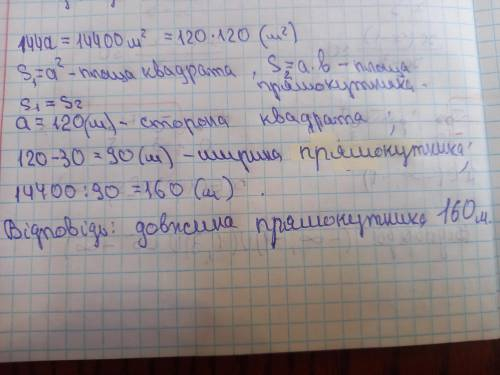 144а = 14400 м² = 120 · 120 (м²)
S₁ = a² - площа квадрата, S₂ = a · b - площа
прямокутника.
S₁ = S₂
a = 120 (м) - сторона квадрата;
120 - 30 = 90 (м) - ширина прямокутника;
14400 : 90 = 160 (м).
Відповідь: довжина прямокутника 160 м.